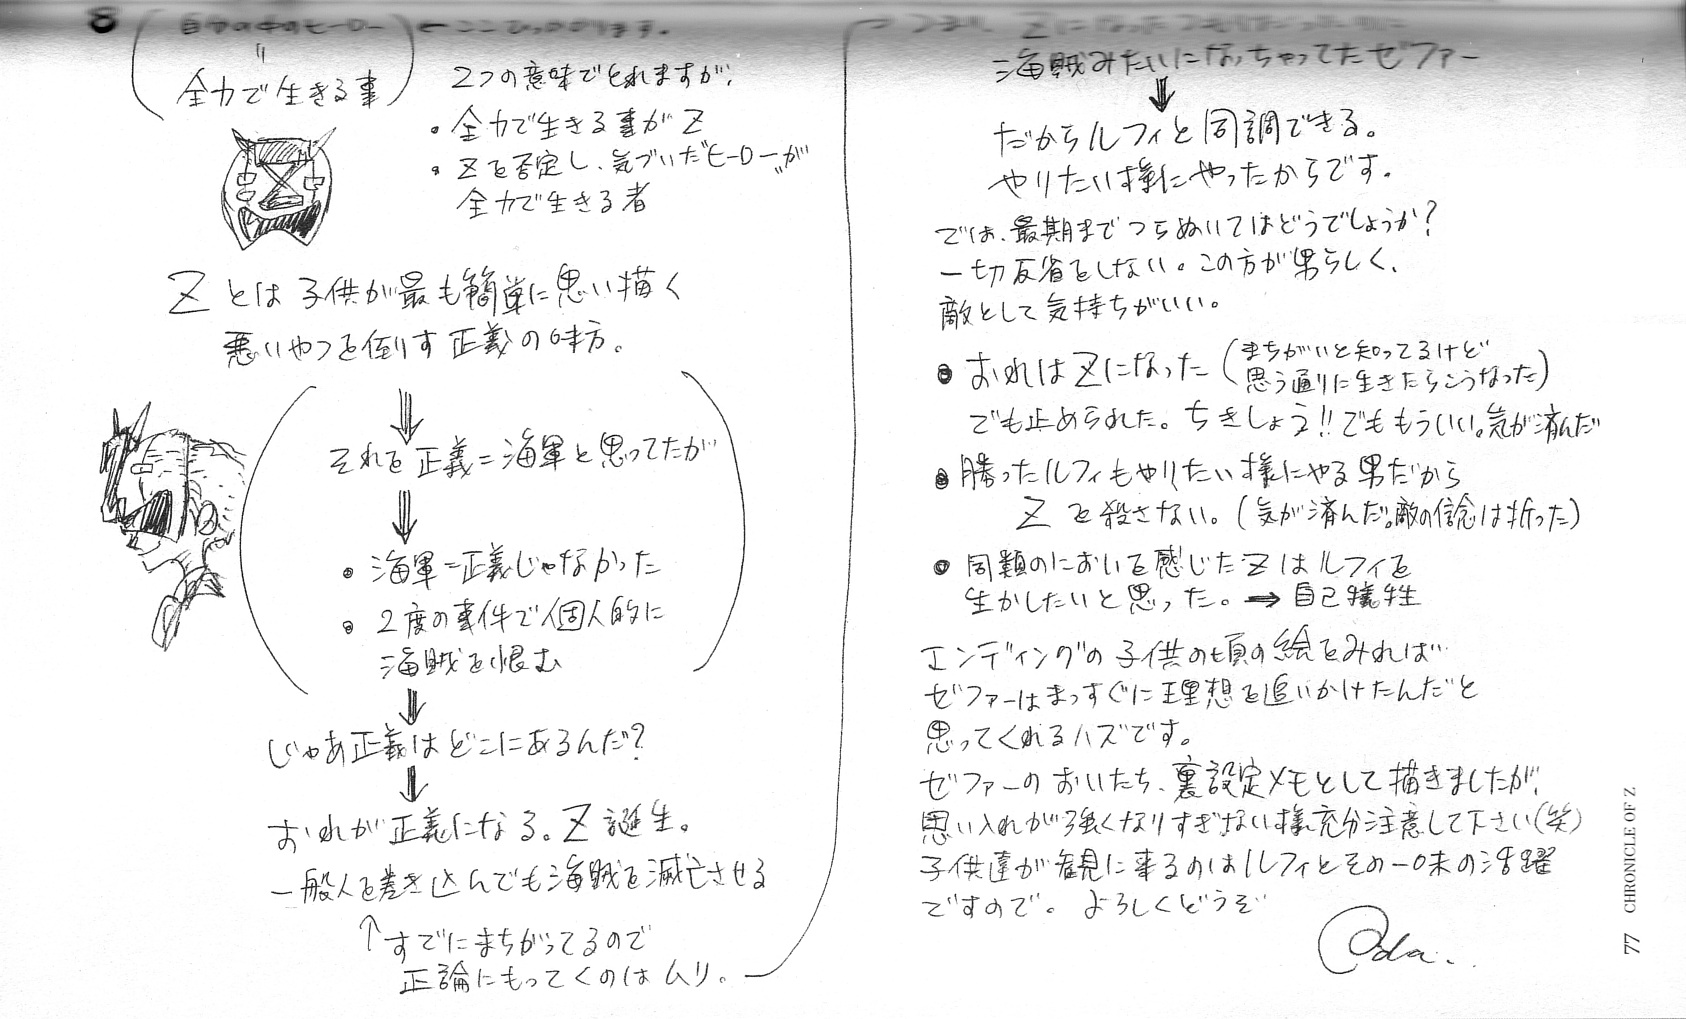 8
自分の中のヒーロー ← ここひっかかります。
〃
全力で生きる事
2つの意味でとれますが、
・全力で生きる事がZ
・Zを否定し、気づいた〝ヒーロー〟が
全力で生きる者
Z
Zとは子供が最も簡単に思い描く
悪いやつを倒す正義の味方。
↓
それを正義=海軍と思ってたが
↓
・海軍=正義じゃなかった
・2度の事件で個人的に
海賊を恨む
↓
じゃあ正義はどこにあるんだ?
↓
おれが正義になる。Z誕生。
一般人を巻き込んでも海賊を滅亡させる
↑すでにまちがってるので
正論にもってくのはムリ。
→つまり、Zになったつもりが
海賊みたいになっちゃってたゼファー
↓
だからルフィと同調できる。
やりたい様にやったからです。
では、最期までつらぬいてはどうでしょうか?
一切反省をしない。この方が男らしく、
敵として気持ちがいい。
・おれはZになった(まちがいと知ってるけど
思う通りに生きたらこうなった)
でも止められた。ちきしょう!!でももういい。気が済んだ
・勝ったルフィもやりたい様にやる男だから
Zを殺さない。(気が済んだ。敵の信念は折った)
・同類のにおいを感じたZはルフィを
生かしたいと思った。→自己犠牲
エンディングの子供の頃の絵をみれば
ゼファーはまっすぐに理想を追いかけたんだと
思ってくれるハズです。
ゼファーのおいたち、裏設定メモとして描きましたが、
思い入れが強くなりすぎない様充分注意して下さい(笑)
子供達が観に来るのはルフィとその一味の活躍
ですので。よろしくどうぞ
Oda..
77 CHRONICLE OF Z